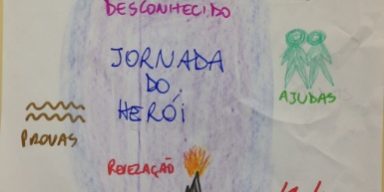 DESCONHECIDO
JORNADA
DO
HERÓI
AJUDAS
PROVAS
REVELAÇÃO